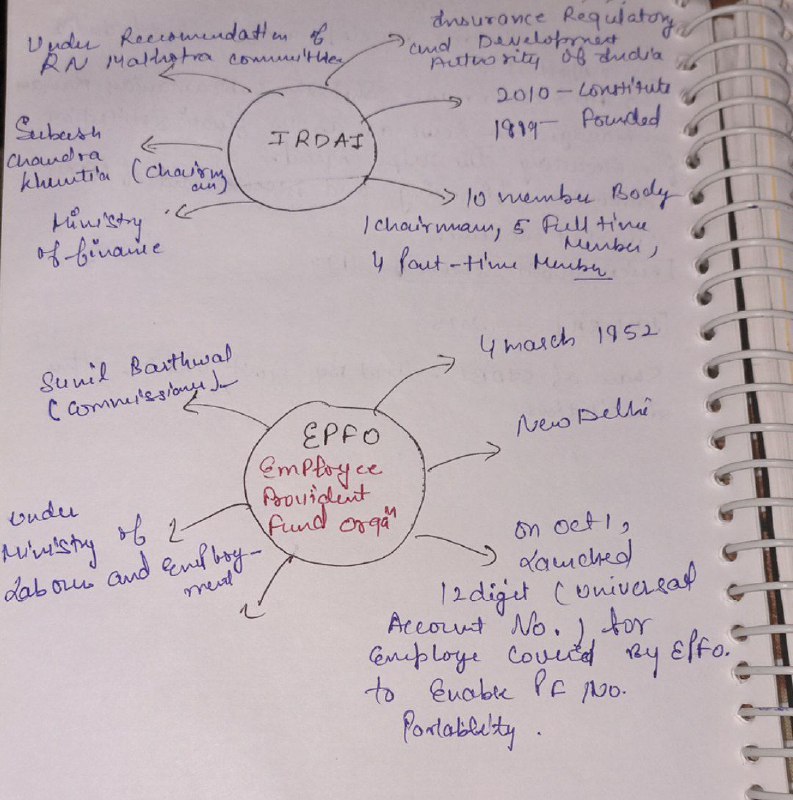 Under Reccomendation of
RN Malhotra committee
Insurance Regulatory
and Development
Authority of India
IRDAI
2010 - Constitute
1999 - Founded
Subash
Chandra
Khuntia (Chairm
an)
Ministry
of finance
10 member Body
1 chairmam, 5 Full time
Member,
4 Part-time Member
Sunil Barthwal
(Commissioner)
4 march 1952
New Delhi
EPFO
Employee
Provident
Fund Orgaⁿ
Under
Ministry of
Labour and Employ-
ment
on oct 1,
Launched
12 digit (Universal
Account No.) for
Employe Covered By EPFO.
to Enable PF No.
Portablity.